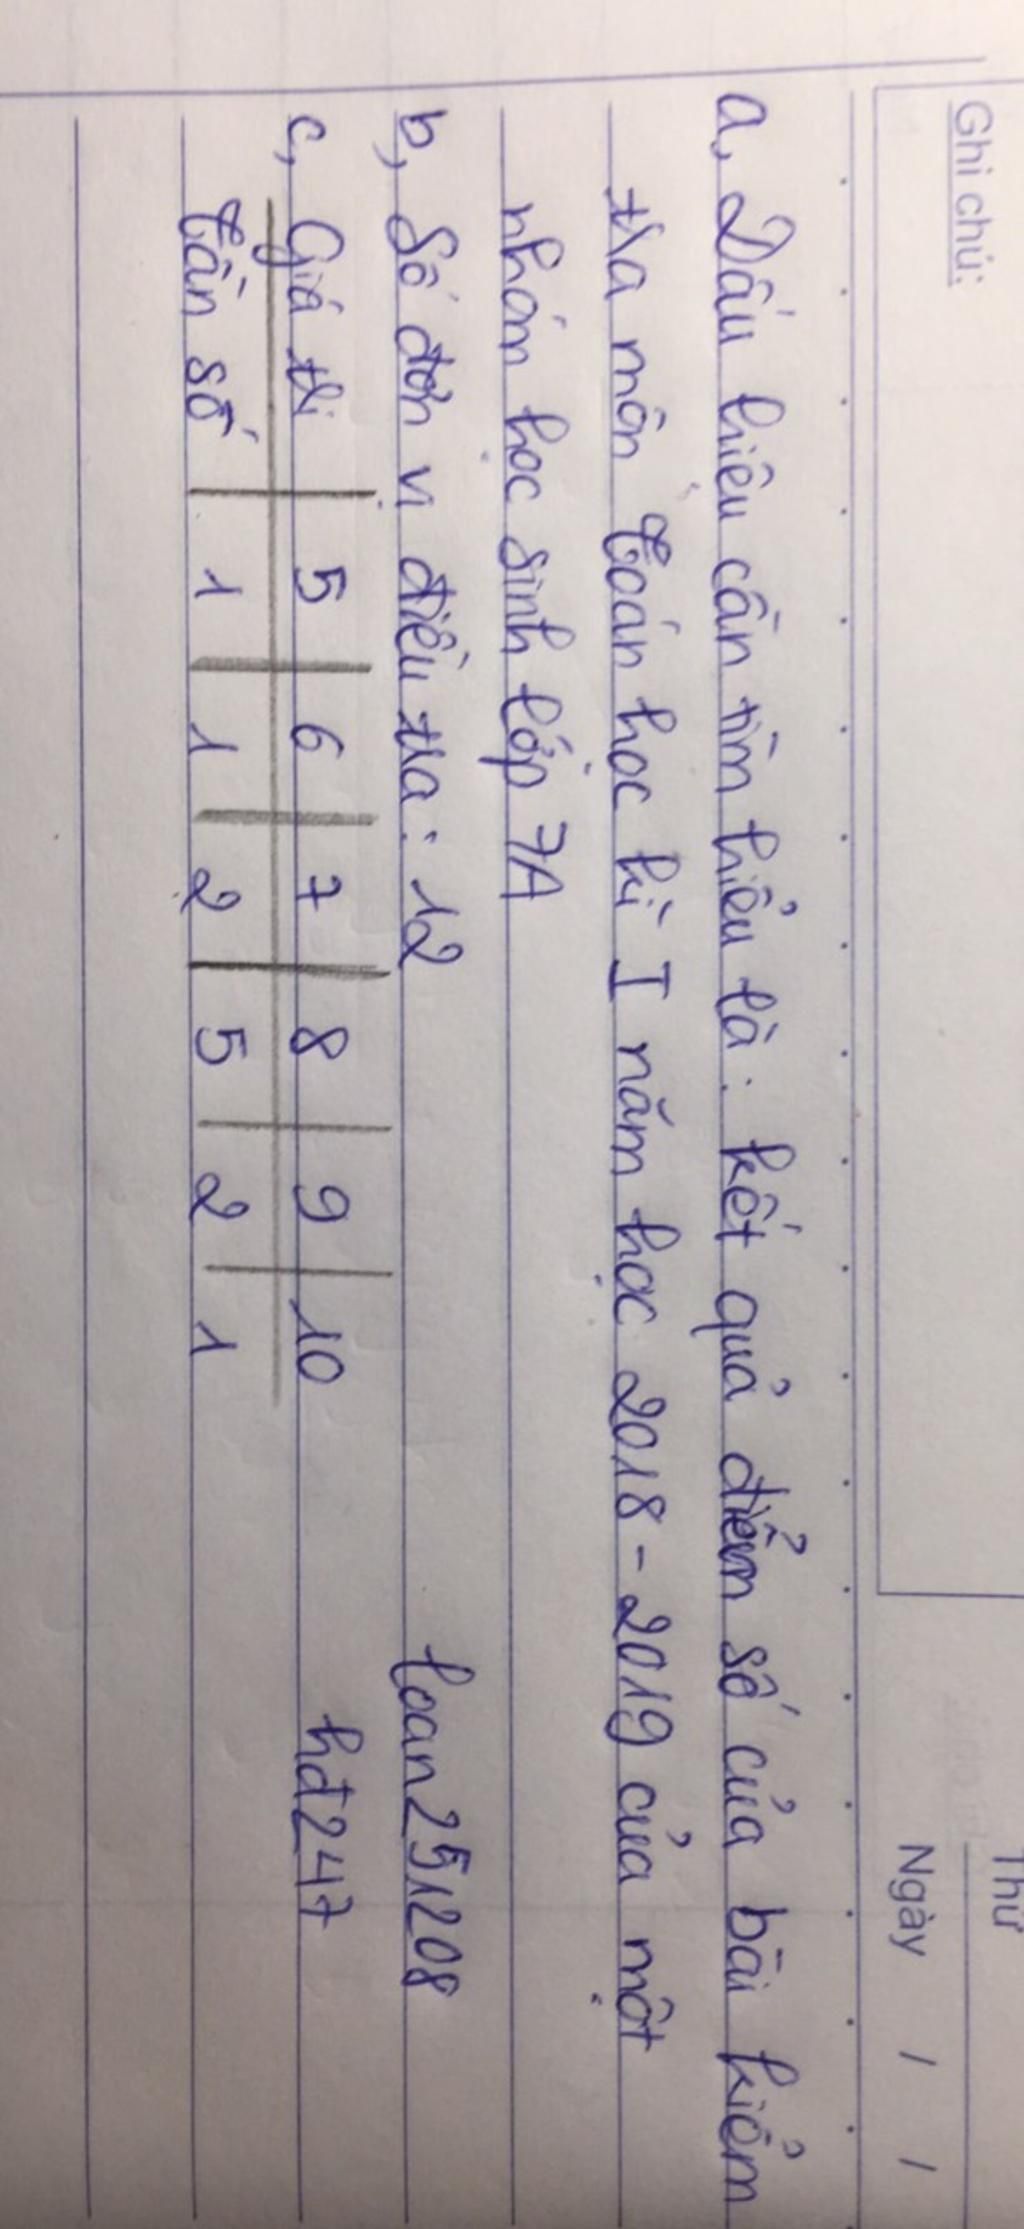 Ghi chú:
Thứ
Ngày / /
a, Dấu hiệu cần tìm hiểu là: kết quả điểm số của bài kiểm
tra môn Toán học kì I năm học 2018-2019 của một
nhóm học sinh lớp 7A
b, Số đơn vị điều tra: 12
loan251208
c, Giá trị 5 6 7 8 9 10
hđ247
Tần số 1 1 2 5 2 1